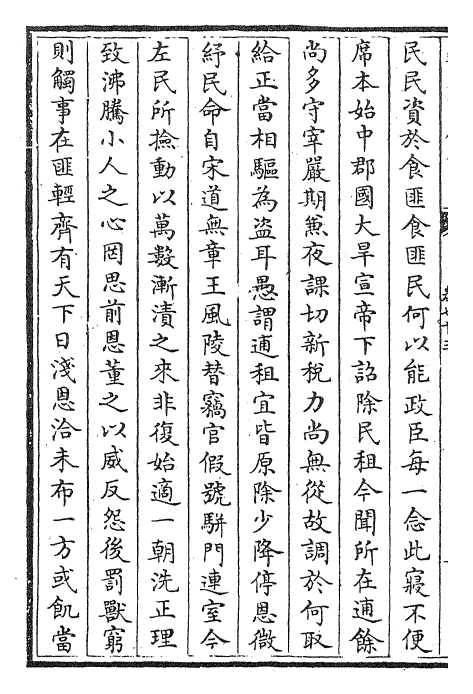 民民資於食匪食匪民何以能政臣每一念此寢不便
席本始中郡國大旱宣帝下詔除民租今聞所在逋餘
尚多守宰嚴期兼夜課切新稅力尚無從故調於何取
給正當相驅為盜耳愚謂逋租宜皆原除少降停恩微
紓民命自宋道無章王風陵替竊官假號駢門連室今
左民所撿動以萬數漸漬之來非復始適一朝洗正理
致沸騰小人之心罔思前恩董之以威反怨後罰獸窮
則觸事在匪輕齊有天下日淺恩洽未布一方或飢當